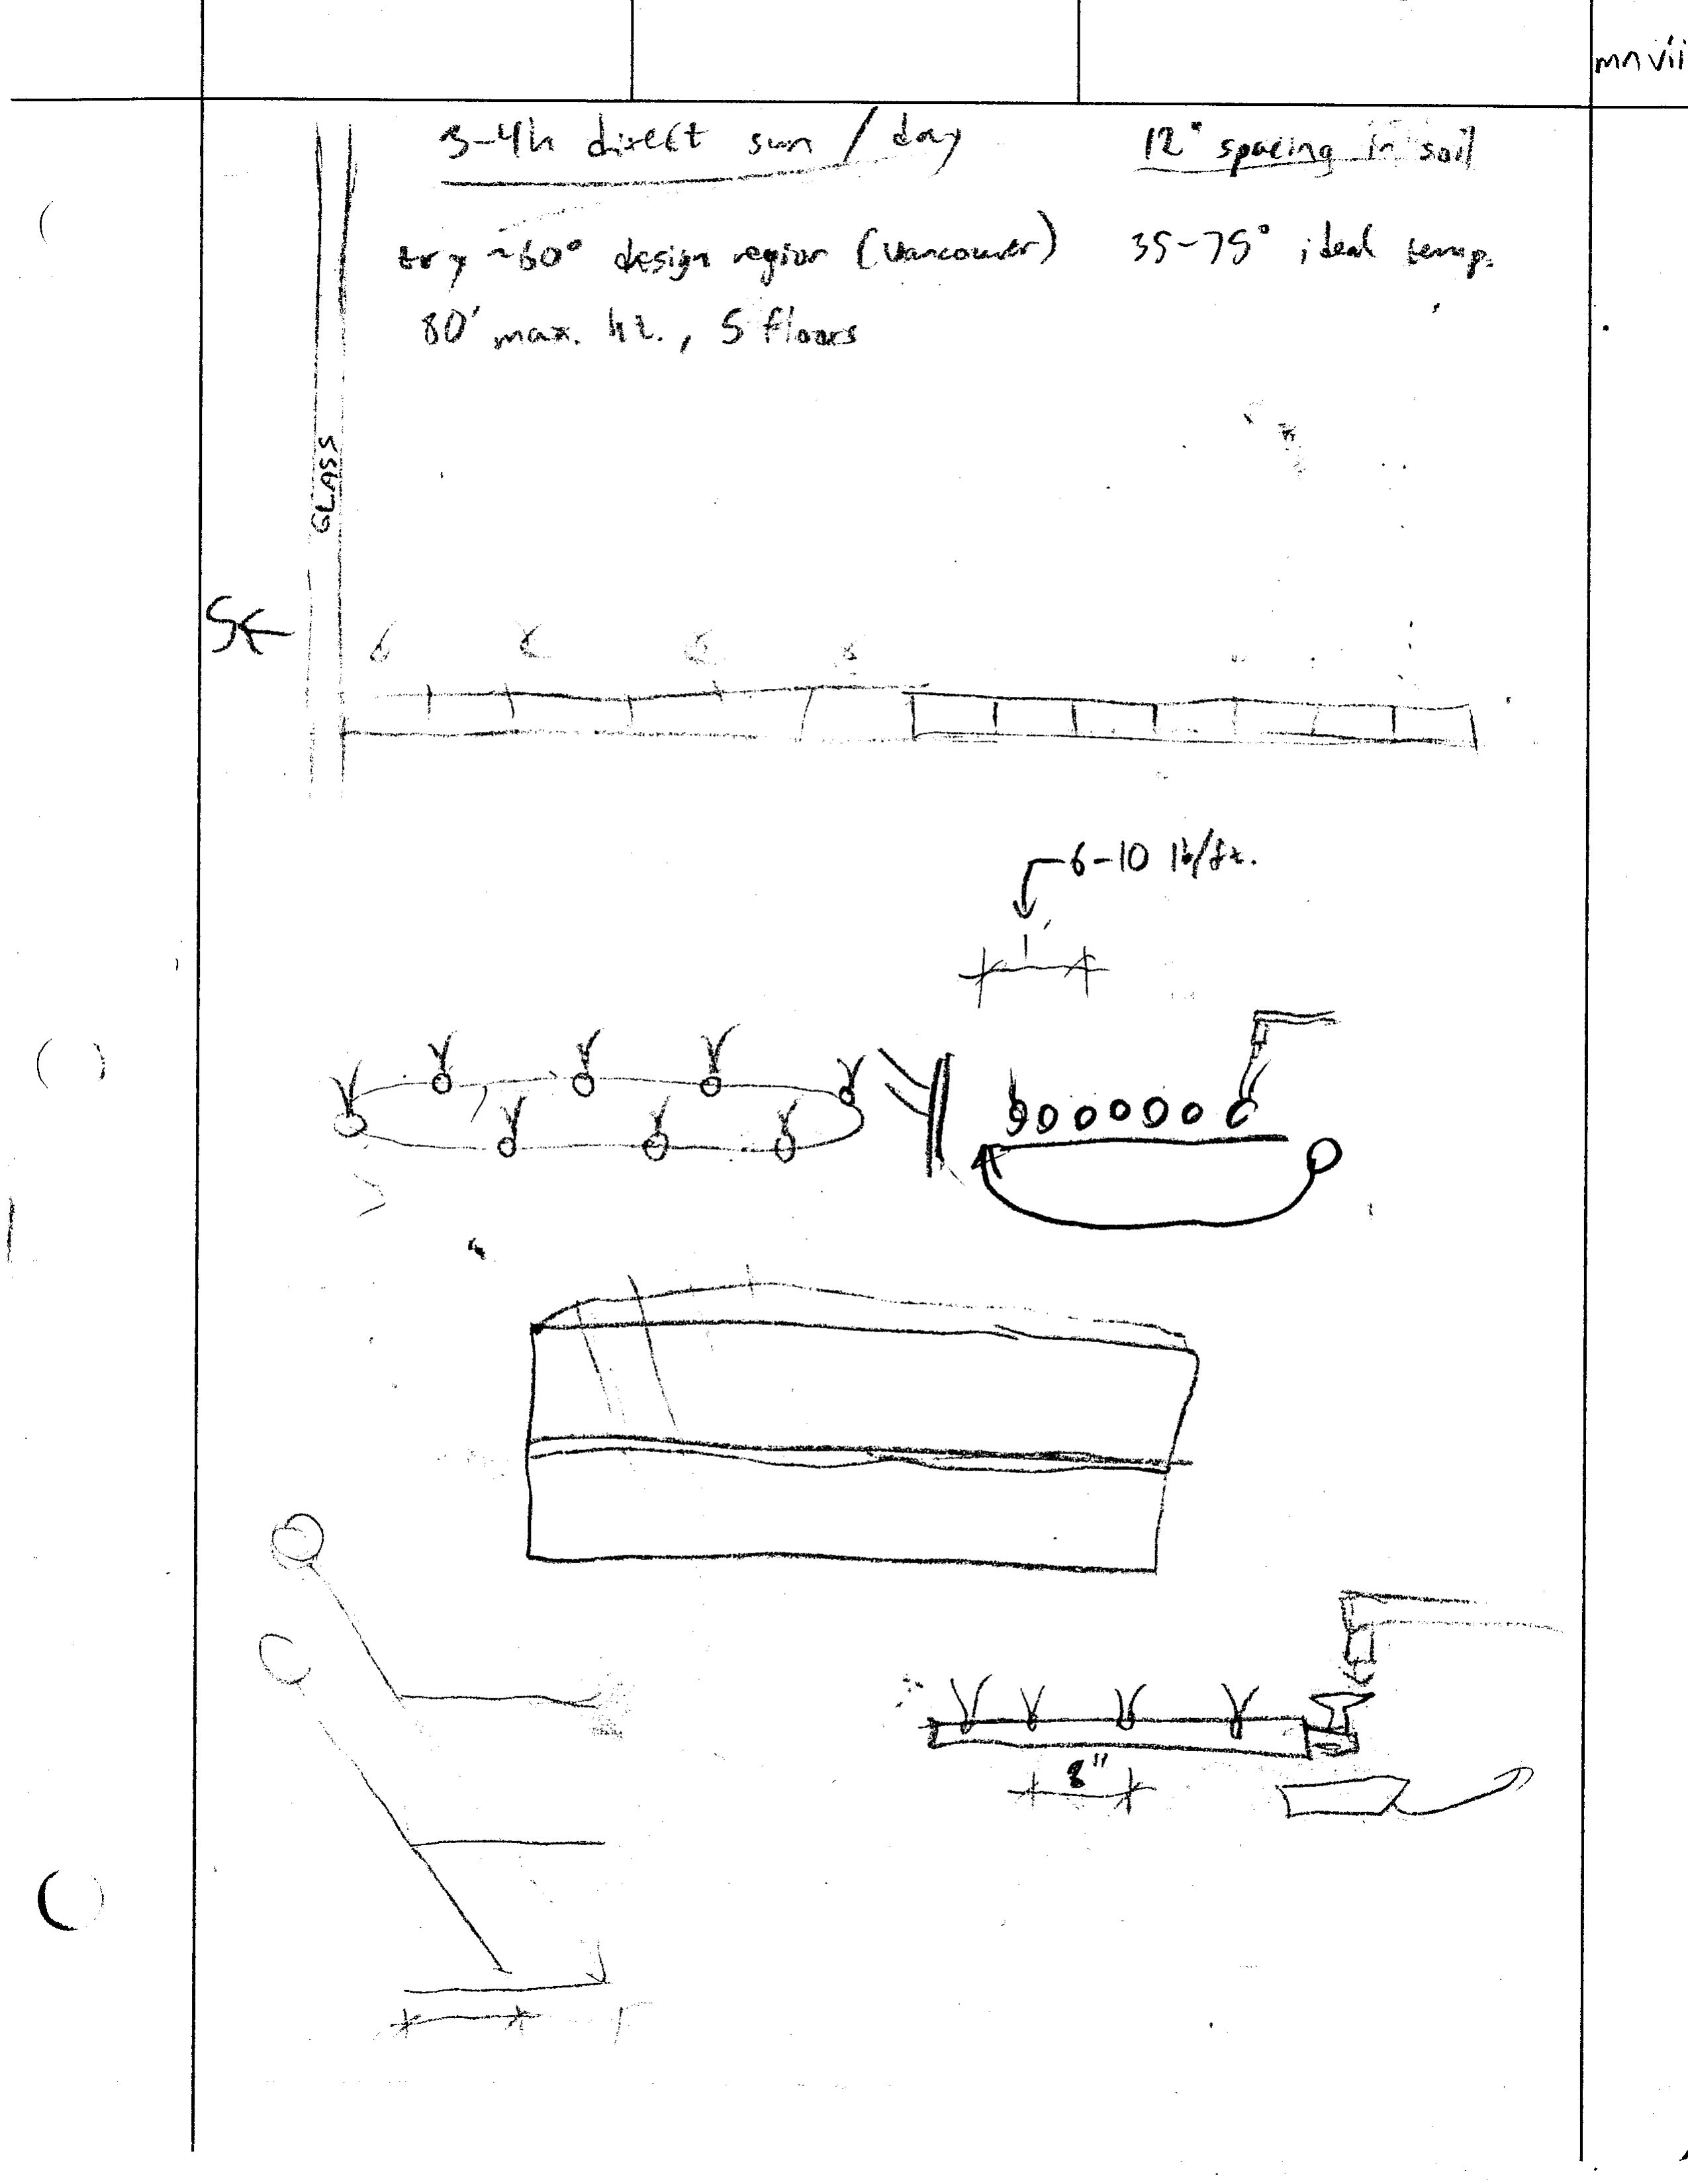 mnvii
3-4h direct sun / day
12" spacing in soil
try ~60° design region (Vancouver)
35-75° ideal temp.
80' max. ht., 5 floors
GLASS
S←
6-10 lb/ft.
1'
8"